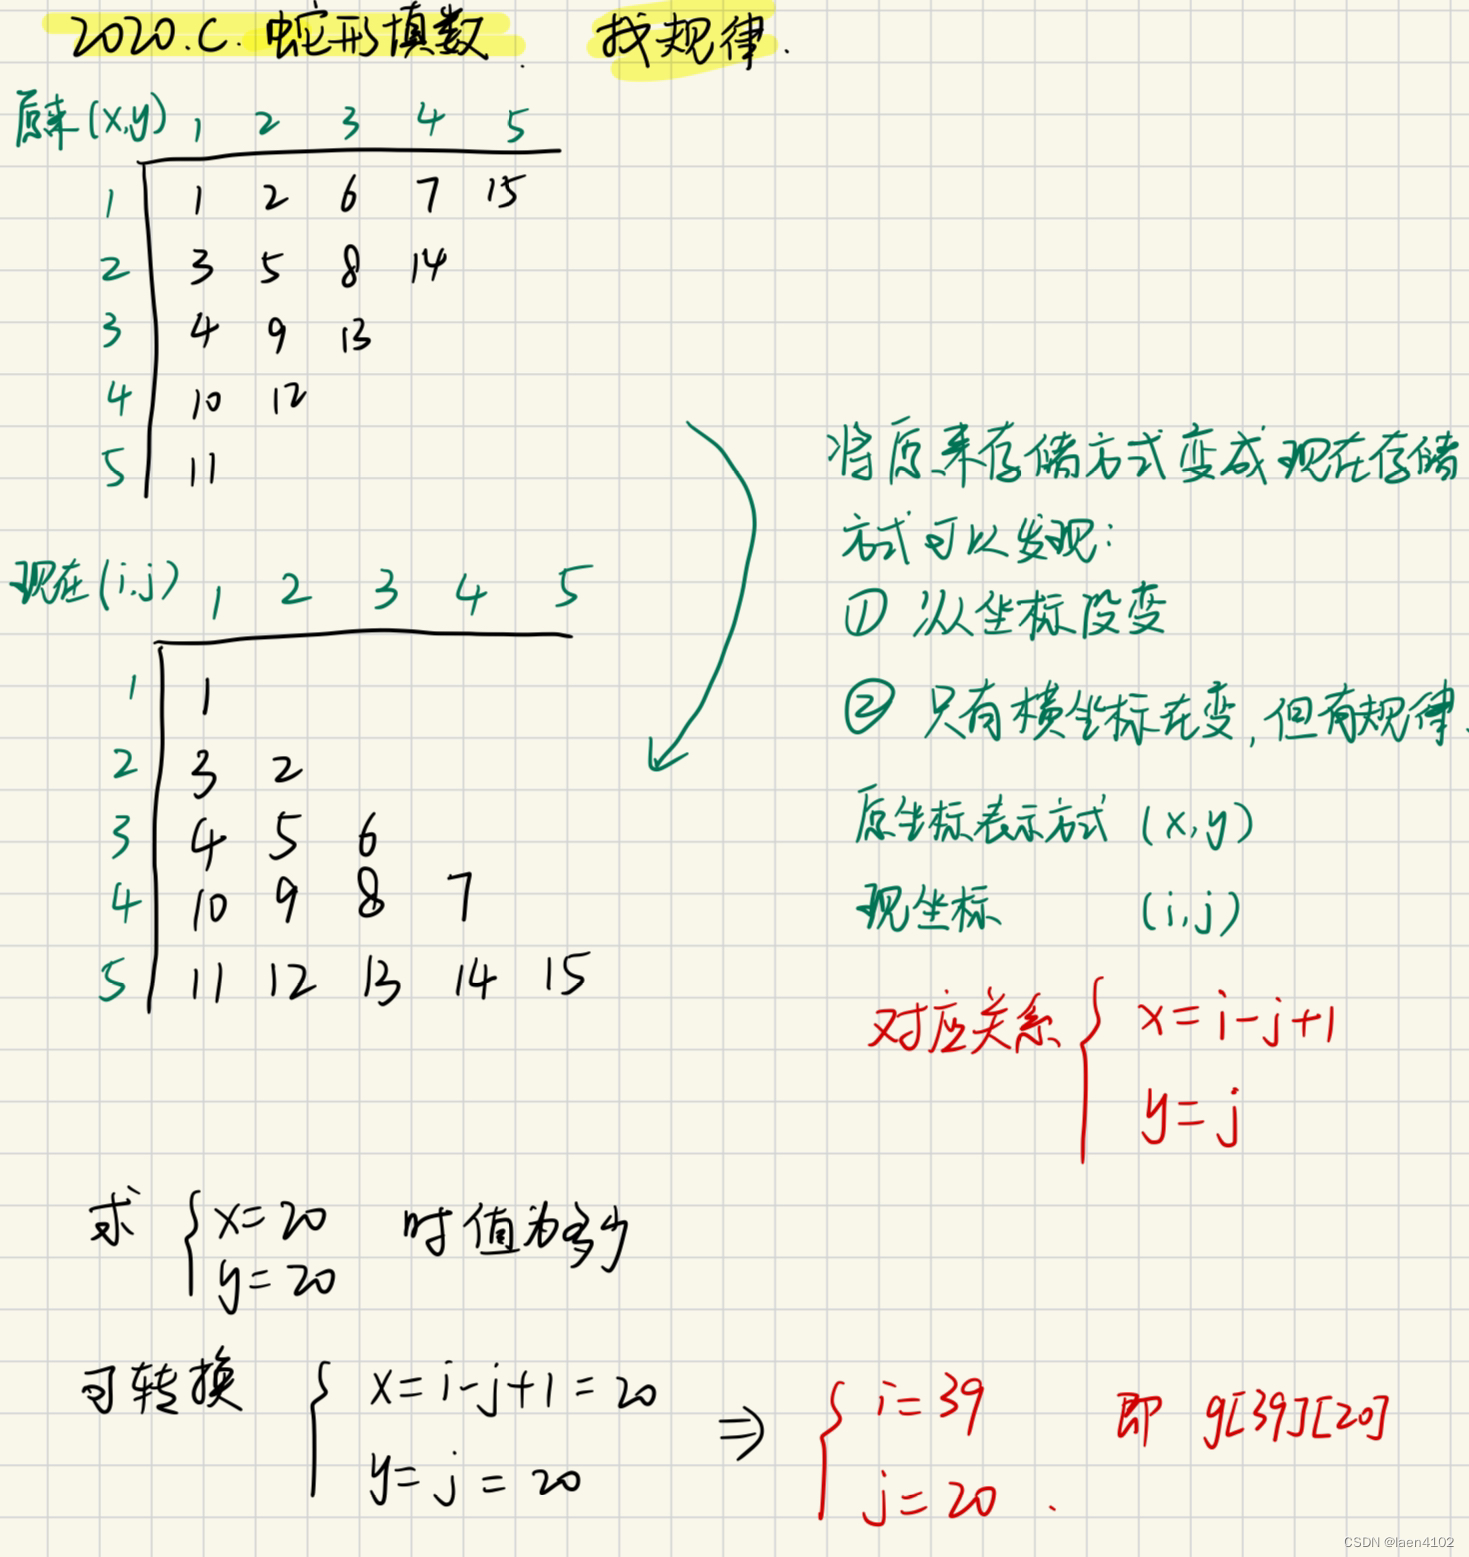 2020.C. 蛇形填数. 找规律.
原来(x,y) 1 2 3 4 5
1 1 2 6 7 15
2 3 5 8 14
3 4 9 13
4 10 12
5 11
将原来存储方式变成现在存储
方式可以发现:
① 从坐标没变
② 只有横坐标在变,但有规律.
现在(i,j) 1 2 3 4 5
1 1
2 3 2
3 4 5 6
4 10 9 8 7
5 11 12 13 14 15
原坐标表示方式 (x,y)
现坐标 (i,j)
对应关系 { x=i-j+1
y=j
求 { x=20 时值为多少
y=20
可转换 { x=i-j+1=20 ⇒ { i=39 即 g[39][20]
y=j=20 j=20.
CSDN @laen4102